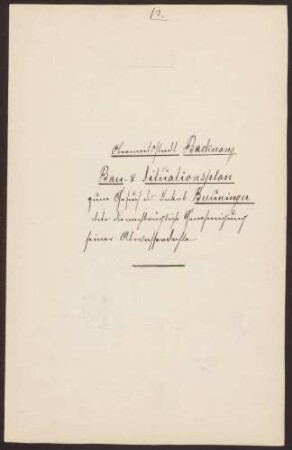 13.
Oberamtsstadt Backnang
Bau- & Situationsplan
zum Gesuch des Jakob Breuninger
die nachträgliche Genehmigung
seiner Abwasserdohle